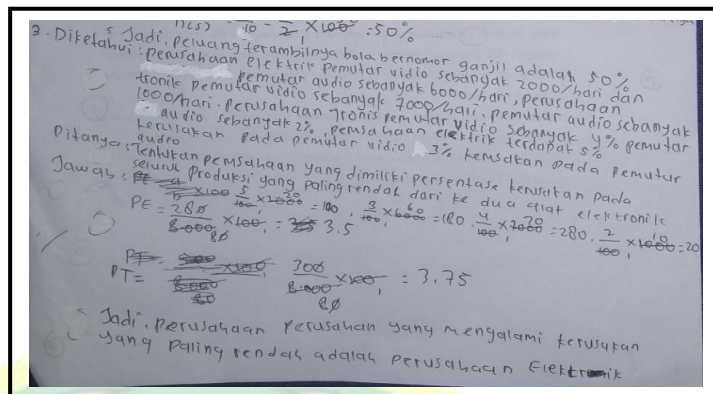 n(s) 10 2 × 100 = 50%
Jadi, peluang terambilnya bola bernomor ganjil adalah 50%
3. Diketahui : perusahaan elektrik pemutar vidio sebanyak 2000/hari dan
pemutar audio sebanyak 6000/hari, perusahaan
tronik pemutar vidio sebanyak 7000/hari, pemutar audio sebanyak
1000/hari. perusahaan tronis pemutar vidio sebanyak 4% pemutar
audio sebanyak 2%, perusahaan elektrik terdapat 5%
kerusakan pada pemutar vidio 3% kerusakan pada pemutar
audio
Ditanya : Tentukan perusahaan yang dimiliki persentase kerusakan pada
seluruh produksi yang paling rendah dari ke dua alat elektronik
Jawab : 5/100 × 2000 20 = 100, 3/100 × 6000 60 = 180. 4/100 × 7000 70 = 280. 2/100 × 1000 10 = 20
PE = 280/8.000 80 × 100, = 3.5
PT = 300/8.000 80 × 100, = 3.75
Jadi, perusahaan perusahan yang mengalami kerusakan
yang paling rendah adalah perusahaan Elektronik